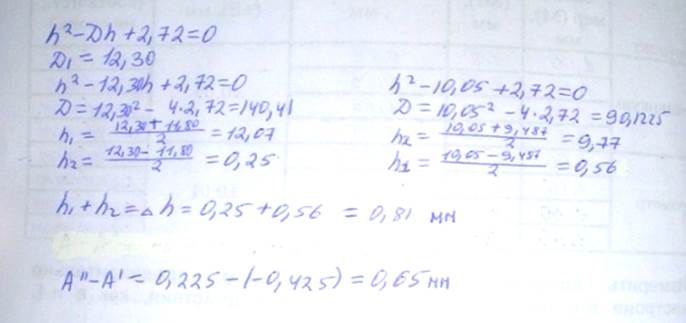 h²-Dh+2,72=0
D₁=12,30
h²-12,30h+2,72=0
D=12,30²-4·2,72=140,41
h₁= (12,30+11,80)/2 =12,07
h₂= (12,30-11,80)/2 =0,25
h²-10,05+2,72=0
D=10,05²-4·2,72=90,1225
h₂= (10,05+9,487)/2 =9,77
h₁= (10,05-9,487)/2 =0,56
h₁+h₂=△h=0,25+0,56 =0,81 мм
A"-A'=0,225-(-0,425)=0,65мм